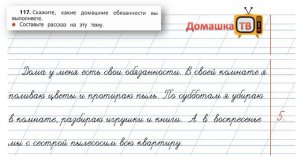 117. Скажите, какие домашние обязанности вы
выполняете.
● Составьте рассказ на эту тему.
Домашка
ТВ
Дома у меня есть свои обязанности. В своей комнате я
поливаю цветы и протираю пыль. По субботам я убираю
в комнате, разбираю игрушки и книги. А в воскресенье
мы с сестрой пылесосим всю квартиру.
5